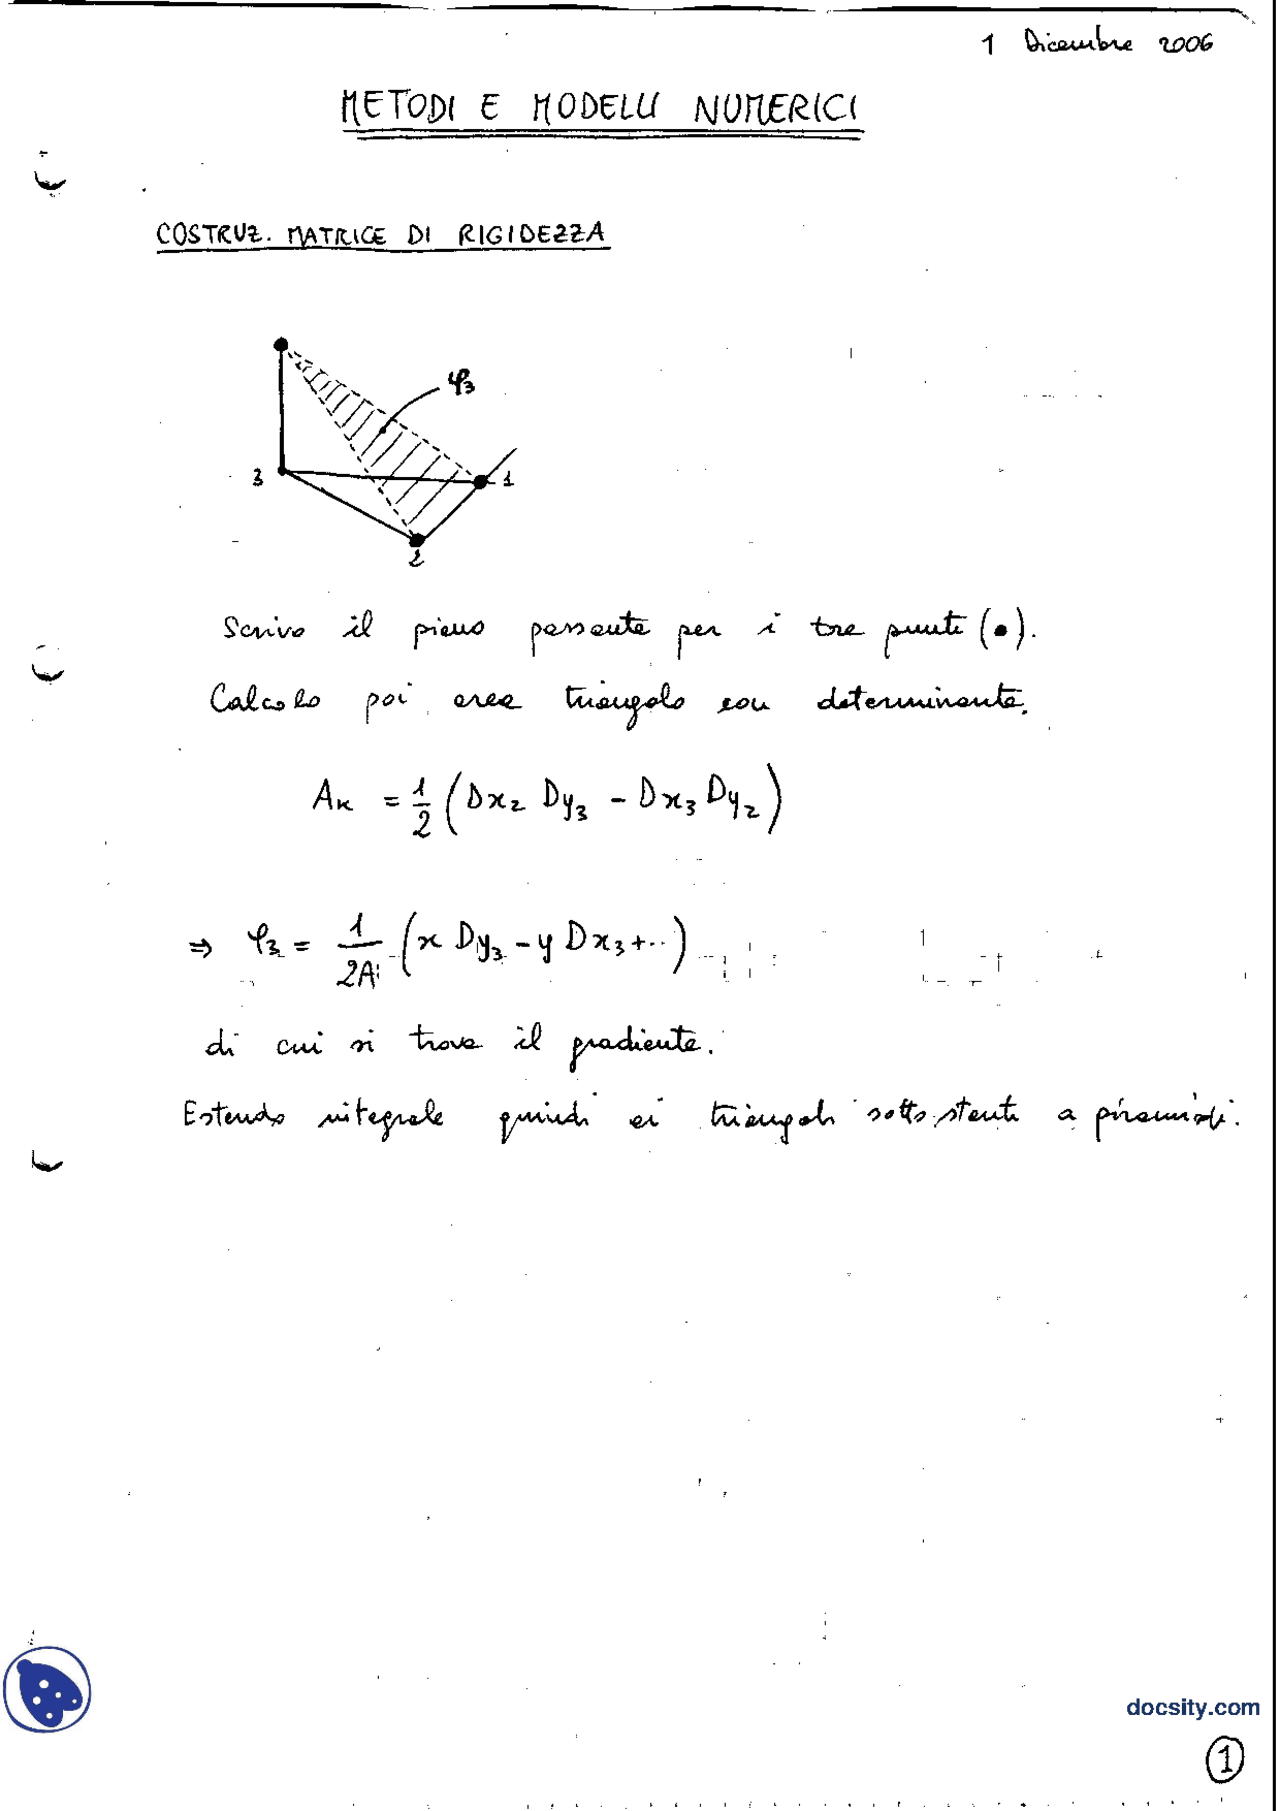 1 Dicembre 2006
METODI E MODELLI NUMERICI
COSTRUZ. MATRICE DI RIGIDEZZA
φ3
3
1
2
Scrivo il piano passante per i tre punti (•).
Calcolo poi area triangolo con determinante.
Aₖ = 1/2 (Dx₂ Dy₃ - Dx₃ Dy₂)
⇒ φ₃ = 1/2Aᵢ (x Dy₃ - y Dx₃ + ...)
di cui si trova il gradiente.
Estendo integrale quindi ai triangoli sottostanti a piramidi.
docsity.com
1